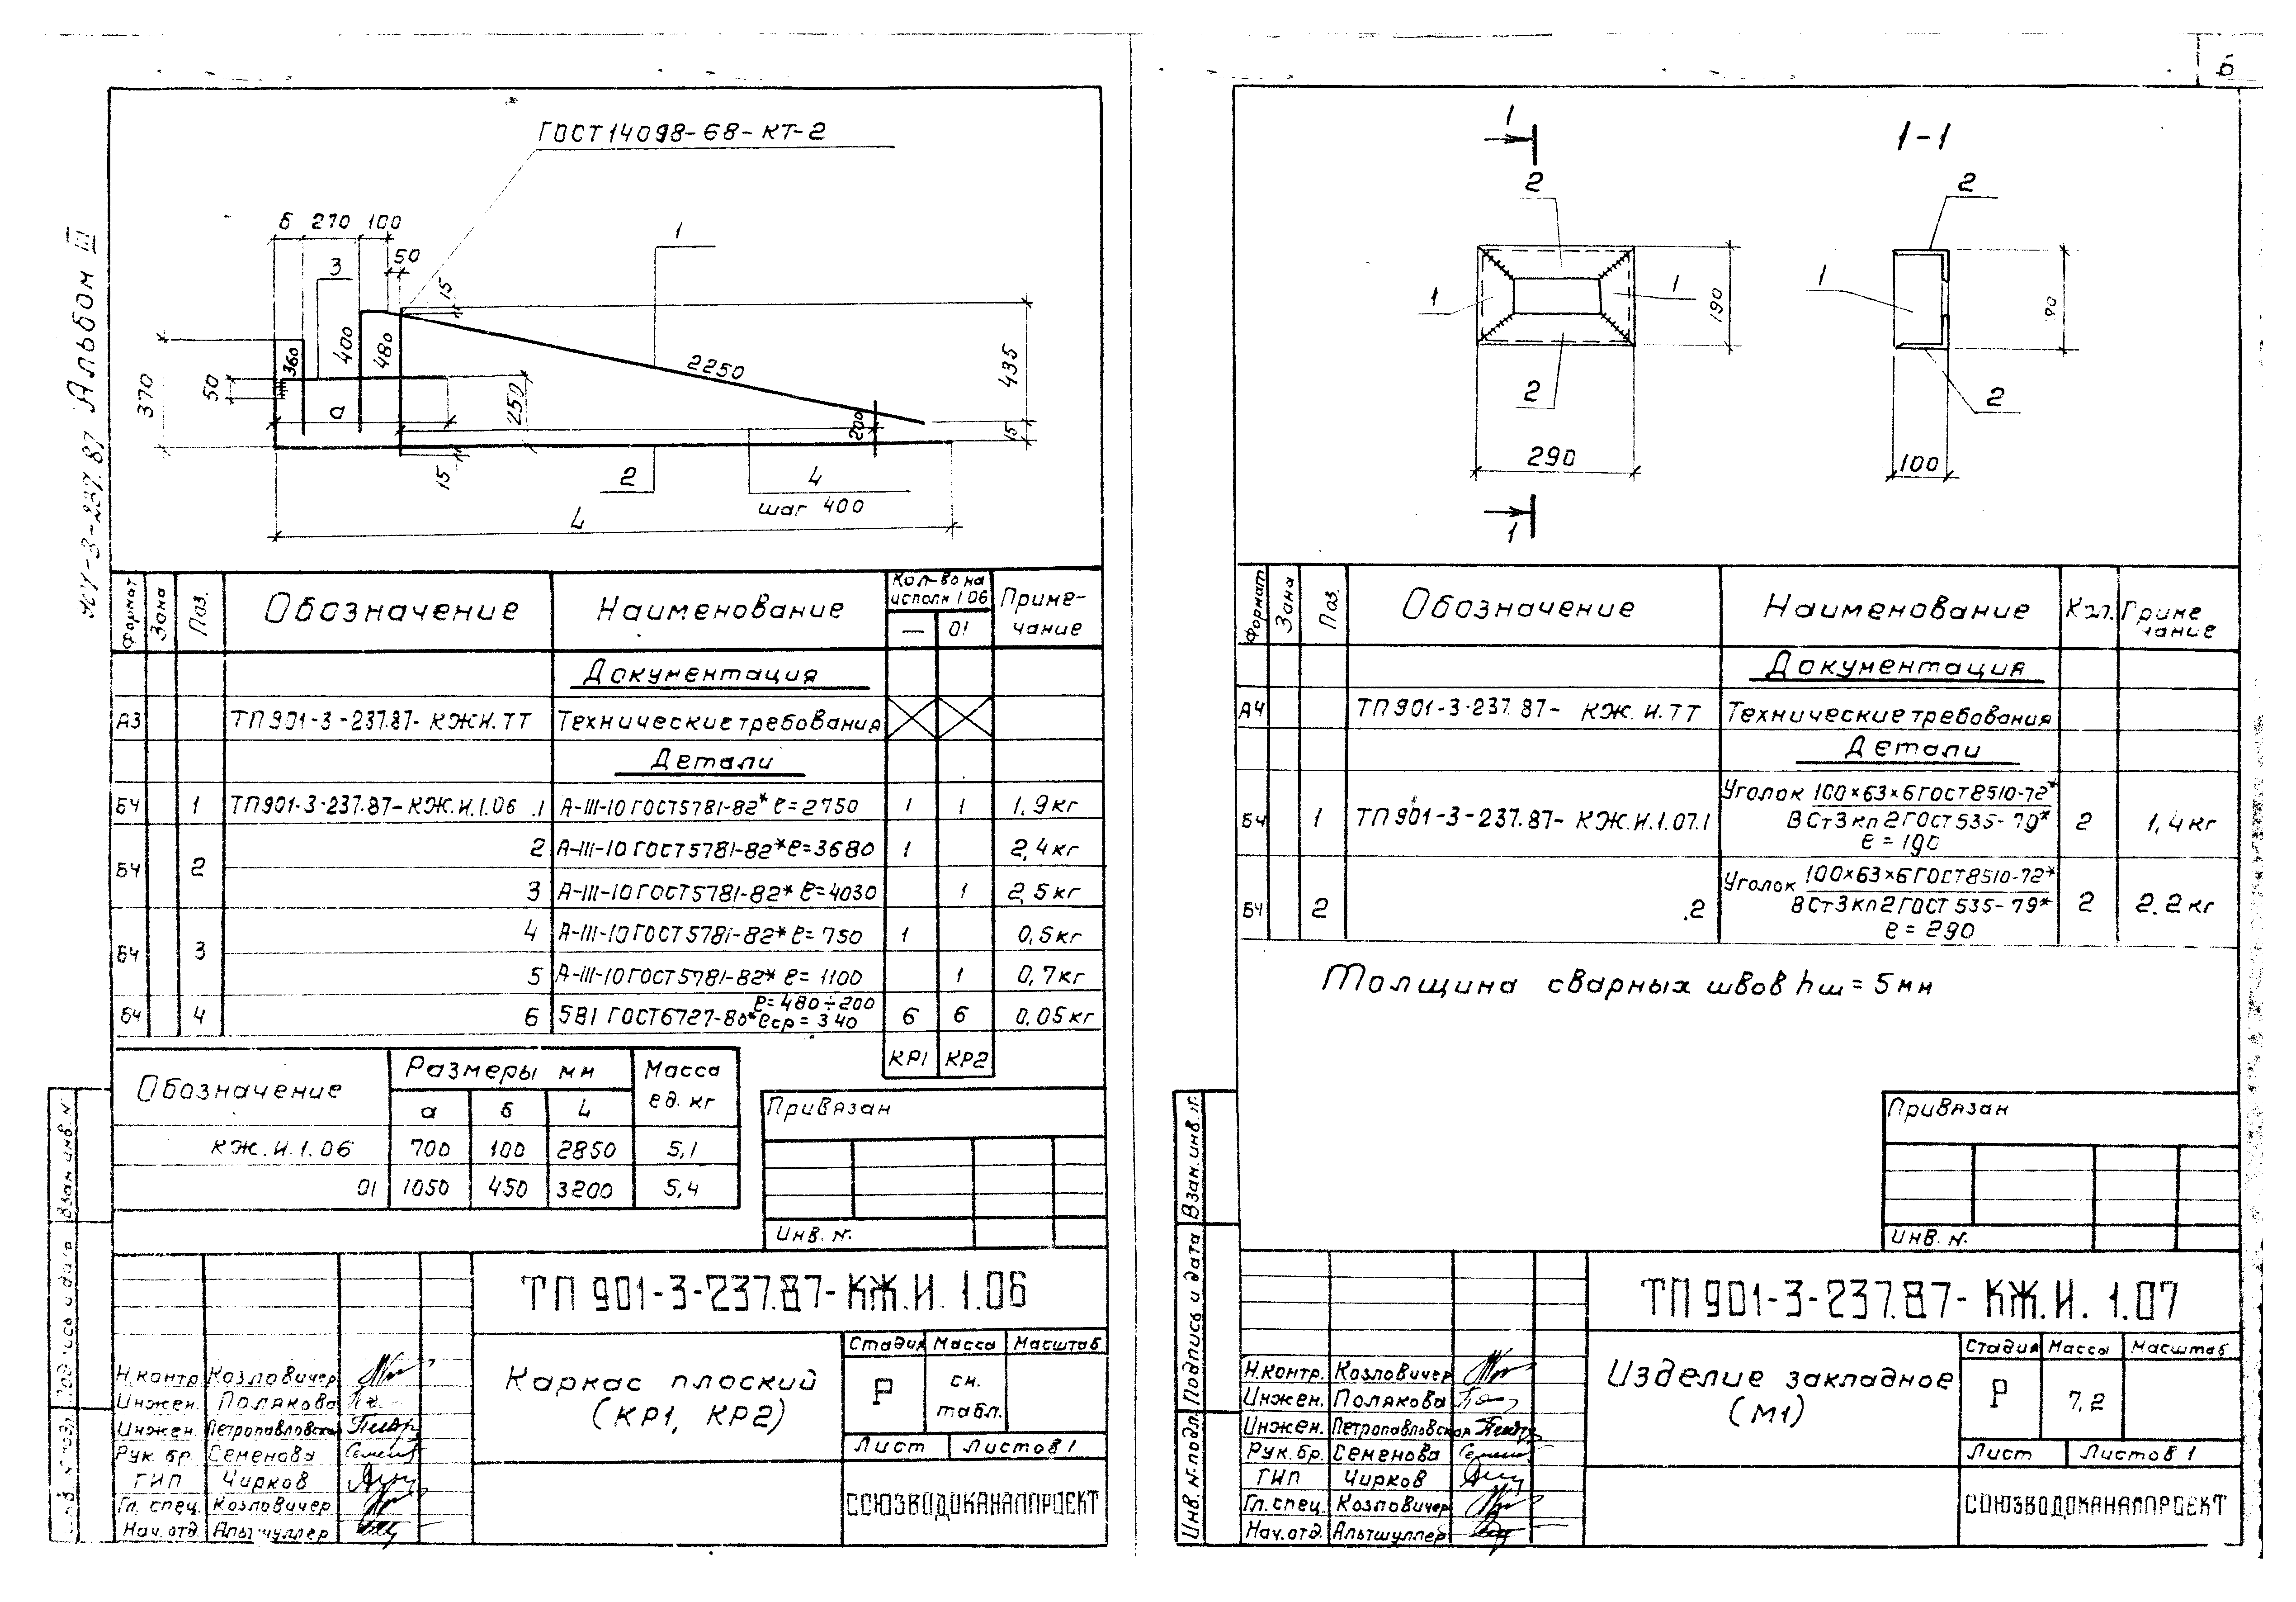 6
Альбом III
ГОСТ 14098-68-КТ-2
б 270 100
50
15
3
1
370
50
360
400
480
а
250
2250
200
435
15
15
2
4
шаг 400
L
Формат Зона Поз. Обозначение Наименование Кол-во на исполн 1.06 Приме-
чание
— 01
Документация
А3 ТП 901-3-237.87-КЖ.И.ТТ Технические требования
Детали
БЧ 1 ТП901-3-237.87-КЖ.И.1.06 .1 А-III-10 ГОСТ5781-82* ℓ=2750 1 1 1,9кг
БЧ 2 2 А-III-10 ГОСТ5781-82* ℓ=3680 1 2,4кг
3 А-III-10 ГОСТ5781-82* ℓ=4030 1 2,5кг
БЧ 3 4 А-III-10 ГОСТ5781-82* ℓ=750 1 0,5кг
5 А-III-10 ГОСТ5781-82* ℓ=1100 1 0,7кг
БЧ 4 6 5В1 ГОСТ6727-80* ℓ=480÷200 ℓср=340 6 6 0,05кг
КР1 КР2
Обозначение Размеры мм Масса
ед. кг
а б L
КЖ.И.1.06 700 100 2850 5,1
01 1050 450 3200 5,4
Привязан
Инв. N.
Взам.инв. N
ТП 901-3-237.87-КЖ.И. 1.06
Н.контр. Козловичер
Инжен. Полякова
Инжен. Петропавловская
Рук. бр. Семенова
ГИП Чирков
Гл. спец. Козловичер
Нач.отд. Альтшуллер
Каркас плоский
(КР1, КР2)
Стадия Масса Масштаб
Р см.
табл.
Лист Листов 1
СОЮЗВОДОКАНАЛПРОЕКТ
1
1-1
2
2
1
1
190
1
2
2
290
100
1
Формат Зона Поз. Обозначение Наименование Кол. Приме
чание
Документация
А4 ТП 901-3-237.87- КЖ.И.ТТ Технические требования
Детали
БЧ 1 ТП 901-3-237.87- КЖ.И.1.07.1 Уголок 100×63×6 ГОСТ 8510-72*
ВСт3кп2 ГОСТ 535-79* 2 1,4кг
ℓ=190
БЧ 2 .2 Уголок 100×63×6 ГОСТ 8510-72*
ВСт3кп2 ГОСТ 535-79* 2 2.2кг
ℓ=290
Толщина сварных швов hш=5мм
Привязан
Инв. N.
Взам.инв. N.
Подпись и дата
Инв. N.подл.
ТП 901-3-237.87- КЖ.И. 1.07
Н.контр. Козловичер
Инжен. Полякова
Инжен. Петропавловская
Рук. бр. Семенова
ГИП Чирков
Гл. спец. Козловичер
Нач.отд. Альтшуллер
Изделие закладное
(М1)
Стадия Масса Масштаб
Р 7,2
Лист Листов 1
СОЮЗВОДОКАНАЛПРОЕКТ